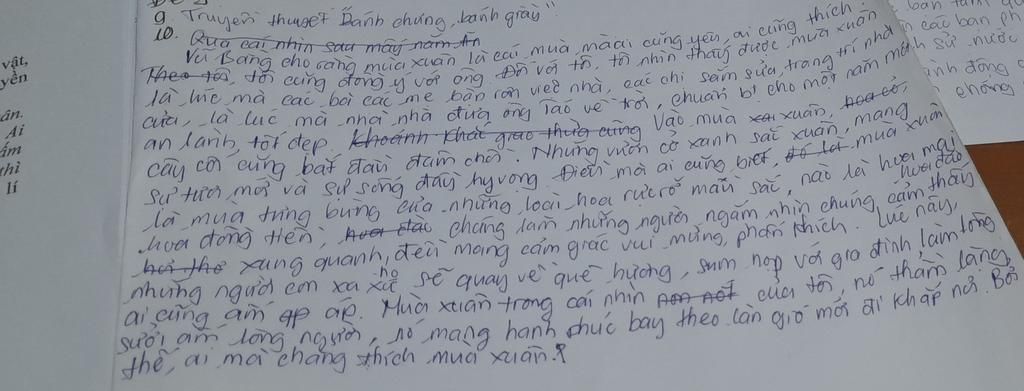 9. Truyền thuyết "Bánh chưng, bánh giầy"
10. Qua cái nhìn sau mấy năm
Vũ Bằng cho rằng mùa xuân là cái mùa mà ai cũng yêu, ai cũng thích.
Theo tôi, tôi cũng đồng ý với ông. Đối với tôi, tôi nhìn thấy được mùa xuân
là lúc mà các bà các mẹ bận rộn việc nhà, các chị sắm sửa, trang trí nhà
cửa, là lúc mà nhà nhà đưa ông Táo về trời, chuẩn bị cho một năm mới
an lành, tốt đẹp. Khoảnh khắc giao thừa cũng Vào mùa xuân, hoa cỏ,
cây cối cũng bắt đầu đâm chồi. Những vườn cỏ xanh sắc xuân, mang
sự tươi mới và sự sống đầy hy vọng. Điều mà ai cũng biết, đó là mùa xuân
là mùa tưng bừng của những loài hoa rực rỡ màu sắc, nào là hoa mai
hoa đào
hoa đồng tiền, hoa chúng làm những người ngắm nhìn chúng cảm thấy
xung quanh, đều mang cảm giác vui mừng, phấn khích. Lúc này,
những người con xa xứ họ sẽ quay về quê hương, sum họp với gia đình, làm lòng
ai cũng ấm áp. Mùa xuân trong cái nhìn non nớt của tôi, nó thầm lặng
sưởi ấm lòng người, nó mang hạnh phúc bay theo làn gió mới đi khắp nơi. Bởi
thế, ai mà chẳng thích mùa xuân?
vật,
yền
ân.
Ai
ấm
thì
lí
các bạn
sử nước
chống